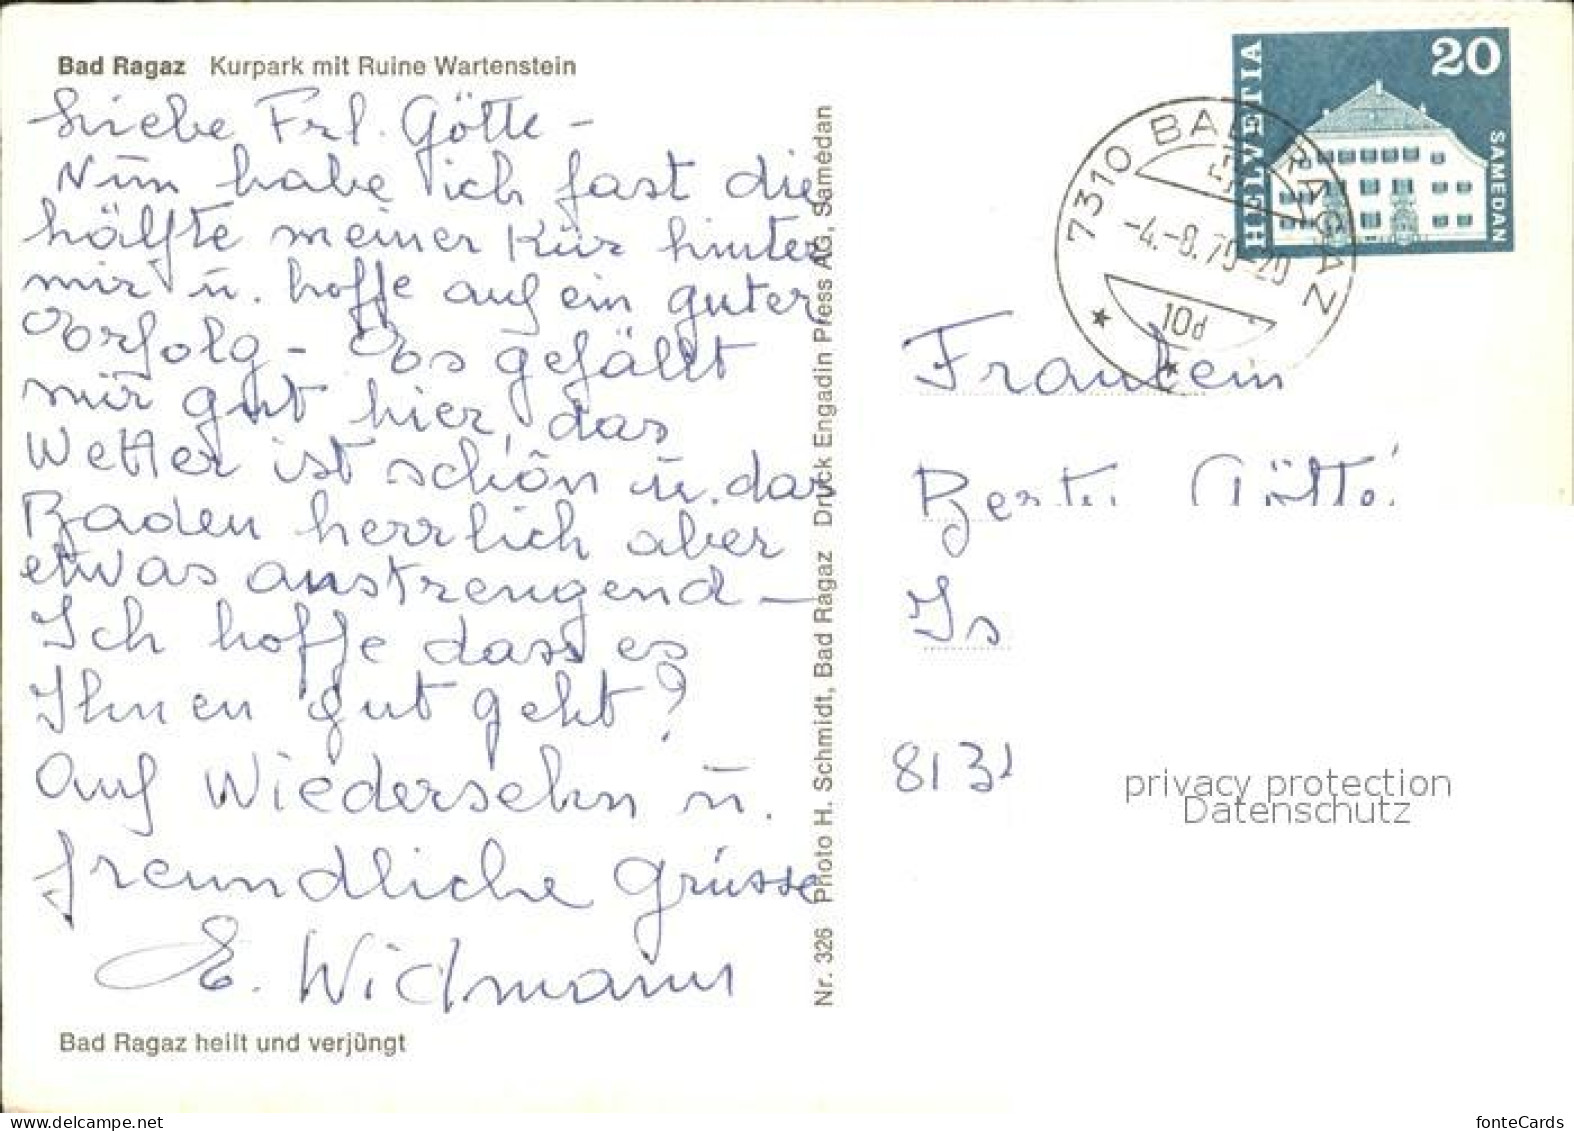 Bad Ragaz Kurpark mit Ruine Wartenstein
Liebe Frl. Götte -
Nun habe ich fast die
hälfte meiner Kur hinter
mir u. hoffe auf ein guter
Erfolg - Es gefällt
mir gut hier, das
Wetter ist schön u. das
Baden herrlich aber
etwas anstrengend -
Ich hoffe dass es
Ihnen gut geht?
Auf Wiedersehn u.
freundliche Grüsse
E. Widmann
Bad Ragaz heilt und verjüngt
Nr. 326 Photo H. Schmidt, Bad Ragaz Druck Engadin Press AG, Samedan
HELVETIA
20
SAMEDAN
7310 BAD RAGAZ
-4.-8.70-20
10d
Fräulein
Götte
Is
8132
privacy protection
Datenschutz
www.delcampe.net
fonteCards